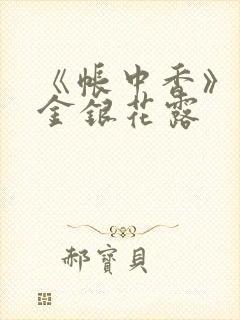 《帳中香》
金銀花露
郝寶貝